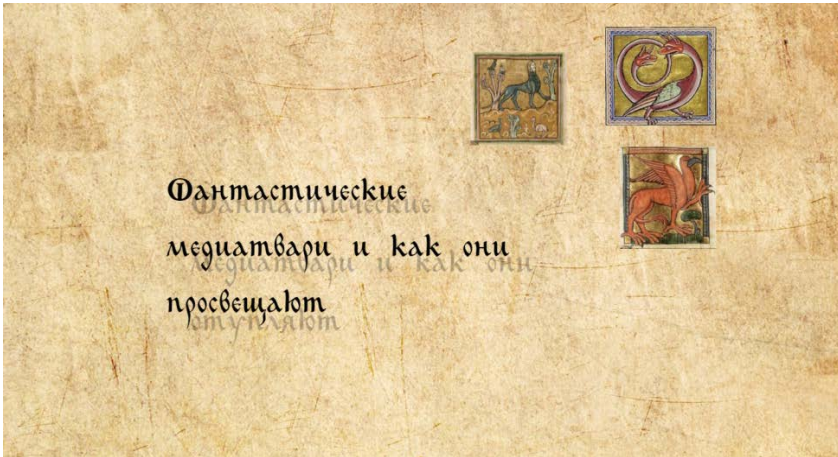 Фантастические
медиатвари и как они
просвещают
отупляют